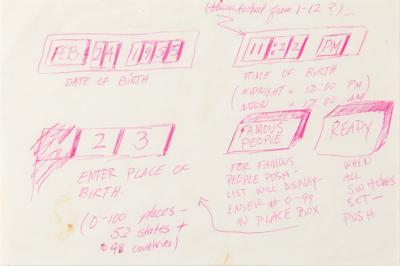 (thumbwheel from 1-12?)...
FEB 24 1955
DATE OF BIRTH
11:22 PM
TIME OF BIRTH
(MIDNIGHT = 12:00 PM)
NOON = 12:00 AM
2 3
ENTER PLACE OF
BIRTH.
(0-100 places -
52 states +
48 countries)
FAMOUS
PEOPLE
FOR FAMOUS
PEOPLE PUSH -
LIST WILL DISPLAY -
ENTER # 0-99
IN PLACE BOX
READY
WHEN
ALL
SWITCHES
SET -
PUSH